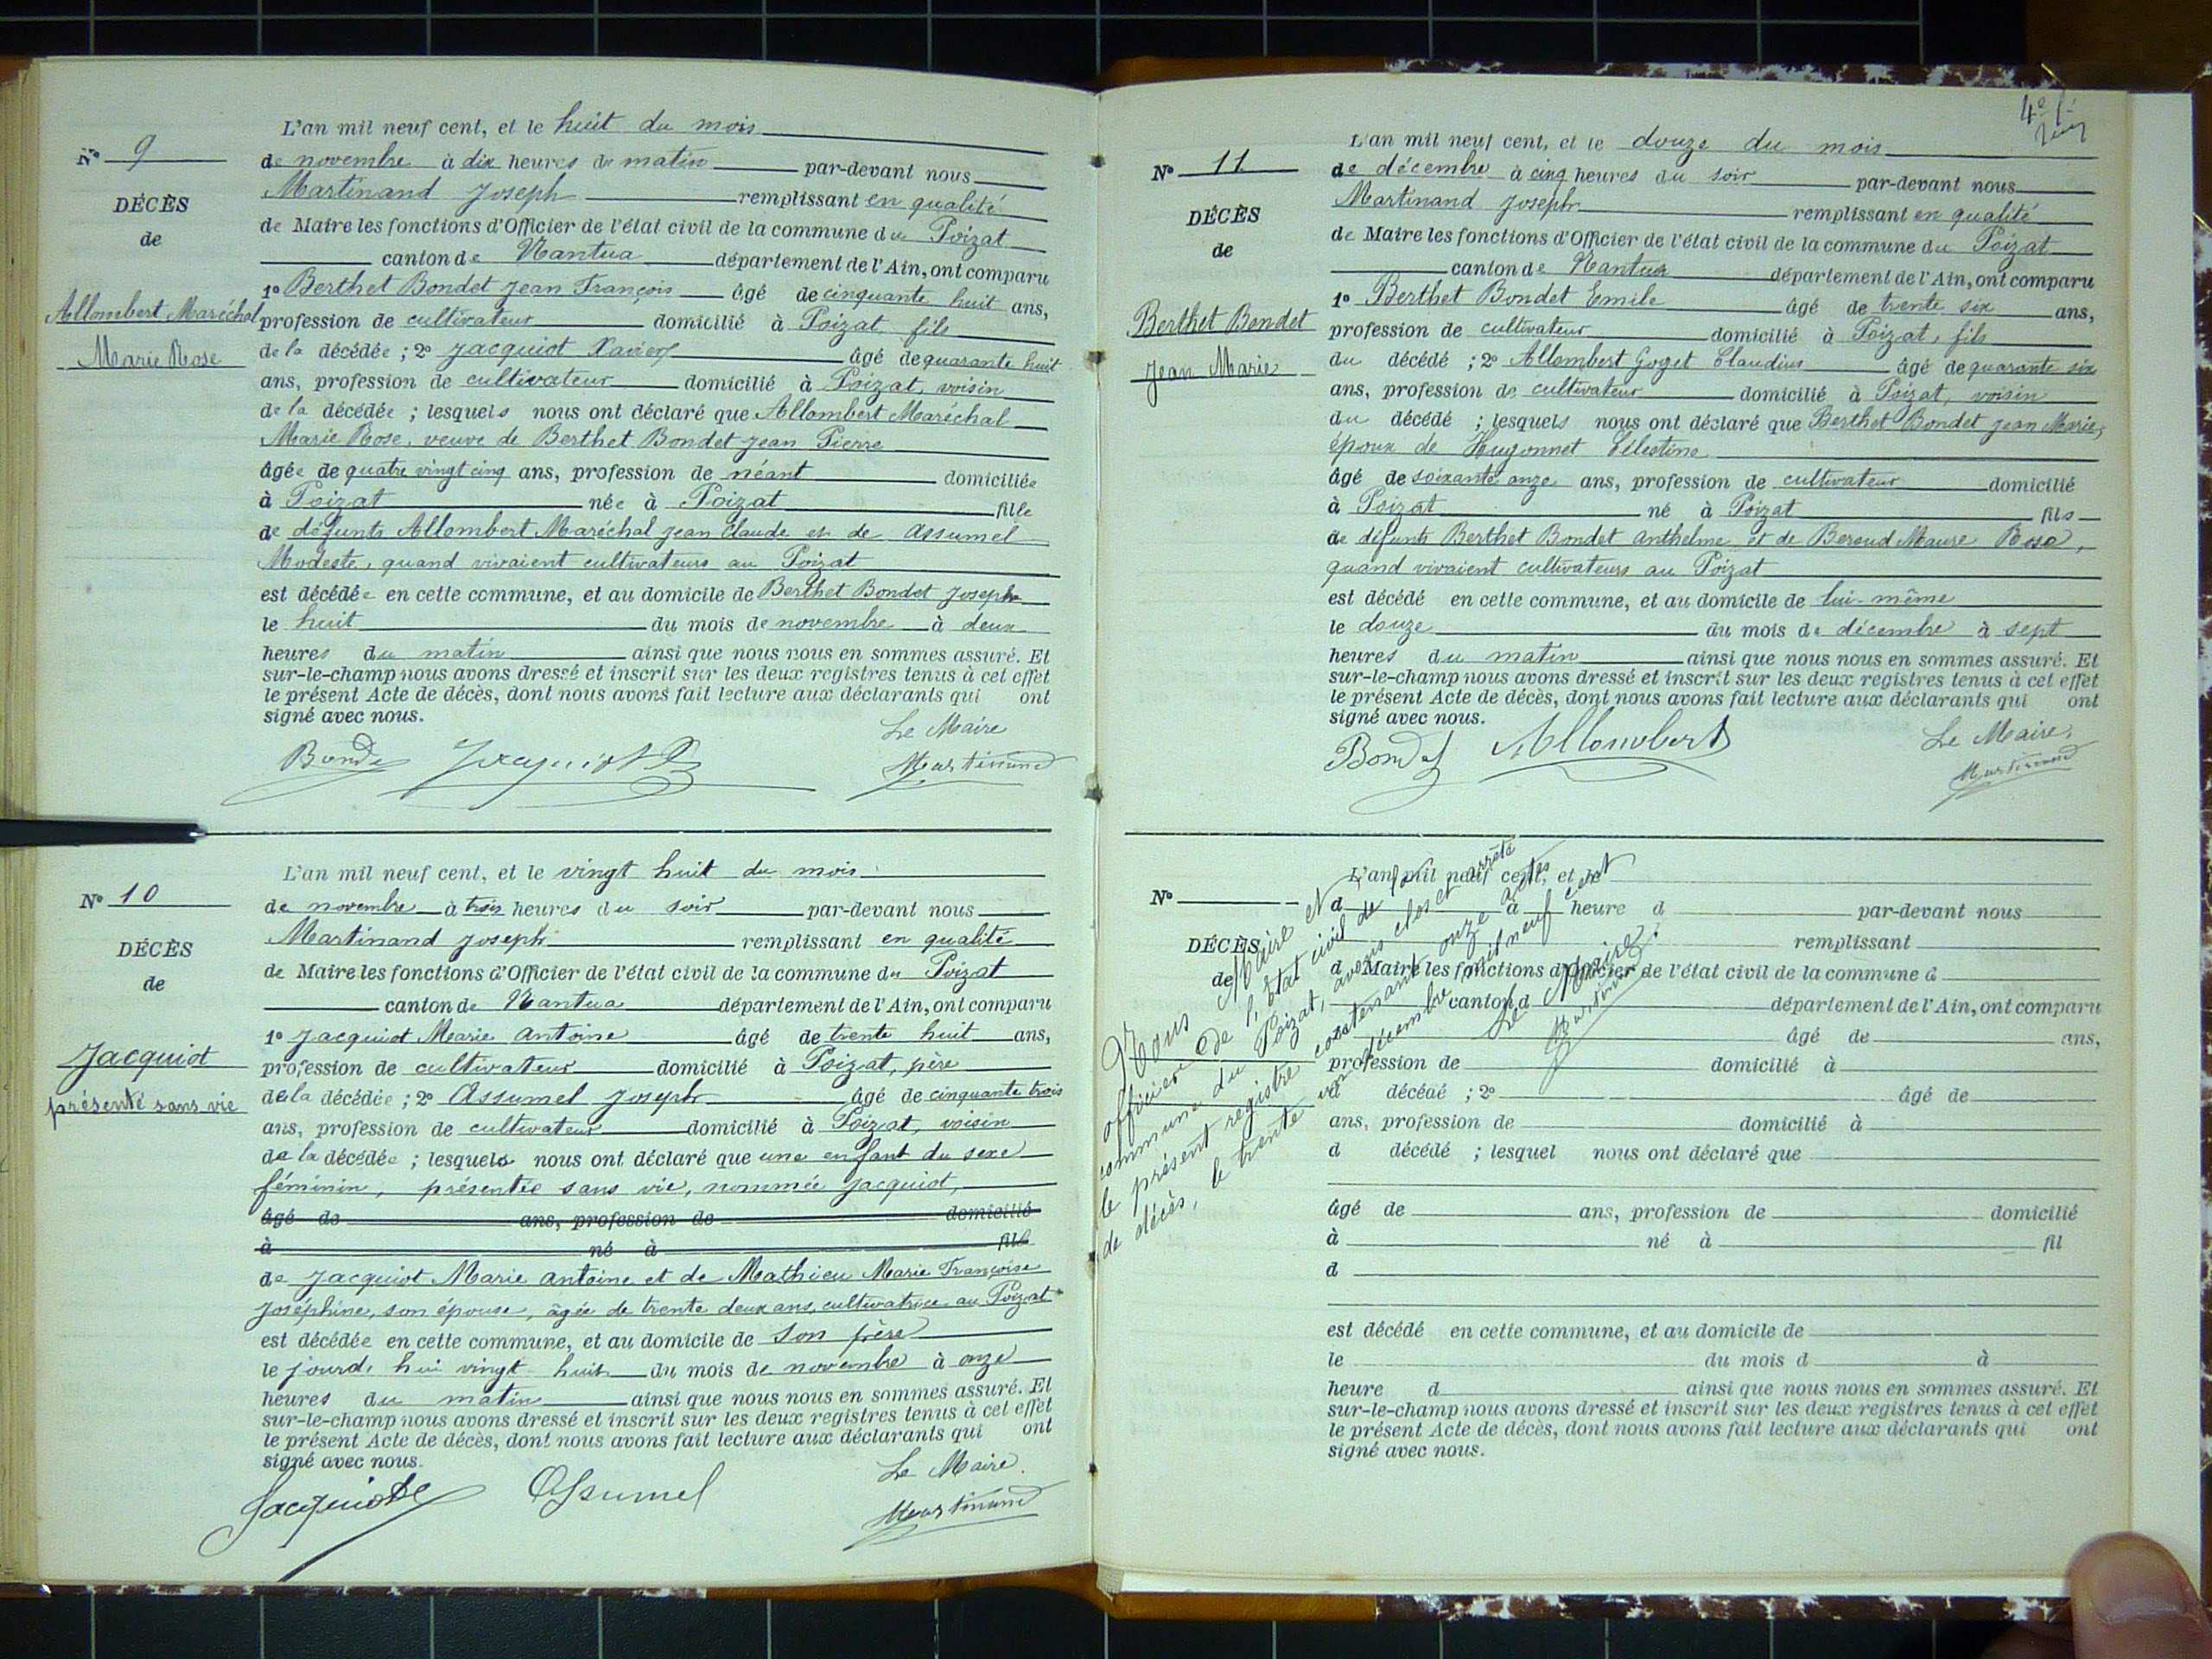 N° 9
DÉCÈS
de
Allombert Maréchal
Marie Rose
L'an mil neuf cent, et le huit du mois
de novembre à dix heures du matin par-devant nous
Martinand Joseph remplissant en qualité
de Maire les fonctions d'Officier de l'état civil de la commune du Poizat
canton de Nantua département de l'Ain, ont comparu
1° Berthet Bondet Jean François âgé de cinquante huit ans,
profession de cultivateur domicilié à Poizat, fils
de la décédée ; 2° Jacquiot Xavier âgé de quarante huit
ans, profession de cultivateur domicilié à Poizat, voisin
de la décédée ; lesquels nous ont déclaré que Allombert Maréchal
Marie Rose, veuve de Berthet Bondet Jean Pierre
âgée de quatre vingt cinq ans, profession de néant domiciliée
à Poizat née à Poizat fille
de défunts Allombert Maréchal Jean Claude et de Assumel
Modeste, quand vivaient cultivateurs au Poizat
est décédée en cette commune, et au domicile de Berthet Bondet Joseph
le huit du mois de novembre à deux
heures du matin ainsi que nous nous en sommes assuré. Et
sur-le-champ nous avons dressé et inscrit sur les deux registres tenus à cet effet
le présent Acte de décès, dont nous avons fait lecture aux déclarants qui ont
signé avec nous.
Le Maire
Bondet Jacquiot Martinand
N° 10
DÉCÈS
de
Jacquiot
présenté sans vie
L'an mil neuf cent, et le vingt huit du mois
de novembre à trois heures du soir par-devant nous
Martinand Joseph remplissant en qualité
de Maire les fonctions d'Officier de l'état civil de la commune du Poizat
canton de Nantua département de l'Ain, ont comparu
1° Jacquiot Marie Antoine âgé de trente huit ans,
profession de cultivateur domicilié à Poizat, père
de la décédée ; 2° Assumel Joseph âgé de cinquante trois
ans, profession de cultivateur domicilié à Poizat, voisin
de la décédée ; lesquels nous ont déclaré que une enfant du sexe
féminin, présentée sans vie, nommée Jacquiot,
âgé de ans, profession de domicilié
à né à fil
de Jacquiot Marie Antoine et de Mathieu Marie Françoise
Joséphine, son épouse, âgée de trente deux ans, cultivatrice au Poizat
est décédée en cette commune, et au domicile de son père
le jourd'hui vingt huit du mois de novembre à onze
heures du matin ainsi que nous nous en sommes assuré. Et
sur-le-champ nous avons dressé et inscrit sur les deux registres tenus à cet effet
le présent Acte de décès, dont nous avons fait lecture aux déclarants qui ont
signé avec nous.
Le Maire.
Jacquiot Assumel Martinand
N° 11
DÉCÈS
de
Berthet Bondet
Jean Marie
L'an mil neuf cent, et le douze du mois
de décembre à cinq heures du soir par-devant nous
Martinand Joseph remplissant en qualité
de Maire les fonctions d'Officier de l'état civil de la commune du Poizat
canton de Nantua département de l'Ain, ont comparu
1° Berthet Bondet Emile âgé de trente six ans,
profession de cultivateur domicilié à Poizat, fils
du décédé ; 2° Allombert Goget Claudius âgé de quarante six
ans, profession de cultivateur domicilié à Poizat, voisin
du décédé ; lesquels nous ont déclaré que Berthet Bondet Jean Marie,
époux de Hugonnet Célestine
âgé de soixante onze ans, profession de cultivateur domicilié
à Poizat né à Poizat fils
de défunts Berthet Bondet Anthelme et de Beroud Maure Rose,
quand vivaient cultivateurs au Poizat
est décédé en cette commune, et au domicile de lui-même
le douze du mois de décembre à sept
heures du matin ainsi que nous nous en sommes assuré. Et
sur-le-champ nous avons dressé et inscrit sur les deux registres tenus à cet effet
le présent Acte de décès, dont nous avons fait lecture aux déclarants qui ont
signé avec nous.
Le Maire,
Bondet Allombert Martinand
N°
DÉCÈS
de
L'an mil neuf cent, et le
d à heure d par-devant nous
remplissant
d Maire les fonctions d'Officier de l'état civil de la commune d
canton d département de l'Ain, ont comparu
âgé de ans,
profession de domicilié à
d décédé ; 2° âgé de
ans, profession de domicilié à
d décédé ; lesquel nous ont déclaré que
âgé de ans, profession de domicilié
à né à fil
d
est décédé en cette commune, et au domicile de
le du mois d à
heure d ainsi que nous nous en sommes assuré. Et
sur-le-champ nous avons dressé et inscrit sur les deux registres tenus à cet effet
le présent Acte de décès, dont nous avons fait lecture aux déclarants qui ont
signé avec nous.
Nous Maire et
officier de l'état civil de la
commune du Poizat, avons clos et arrêté
le présent registre contenant onze actes
de décès, le trente un décembre mil neuf cent
Le Maire,
Martinand